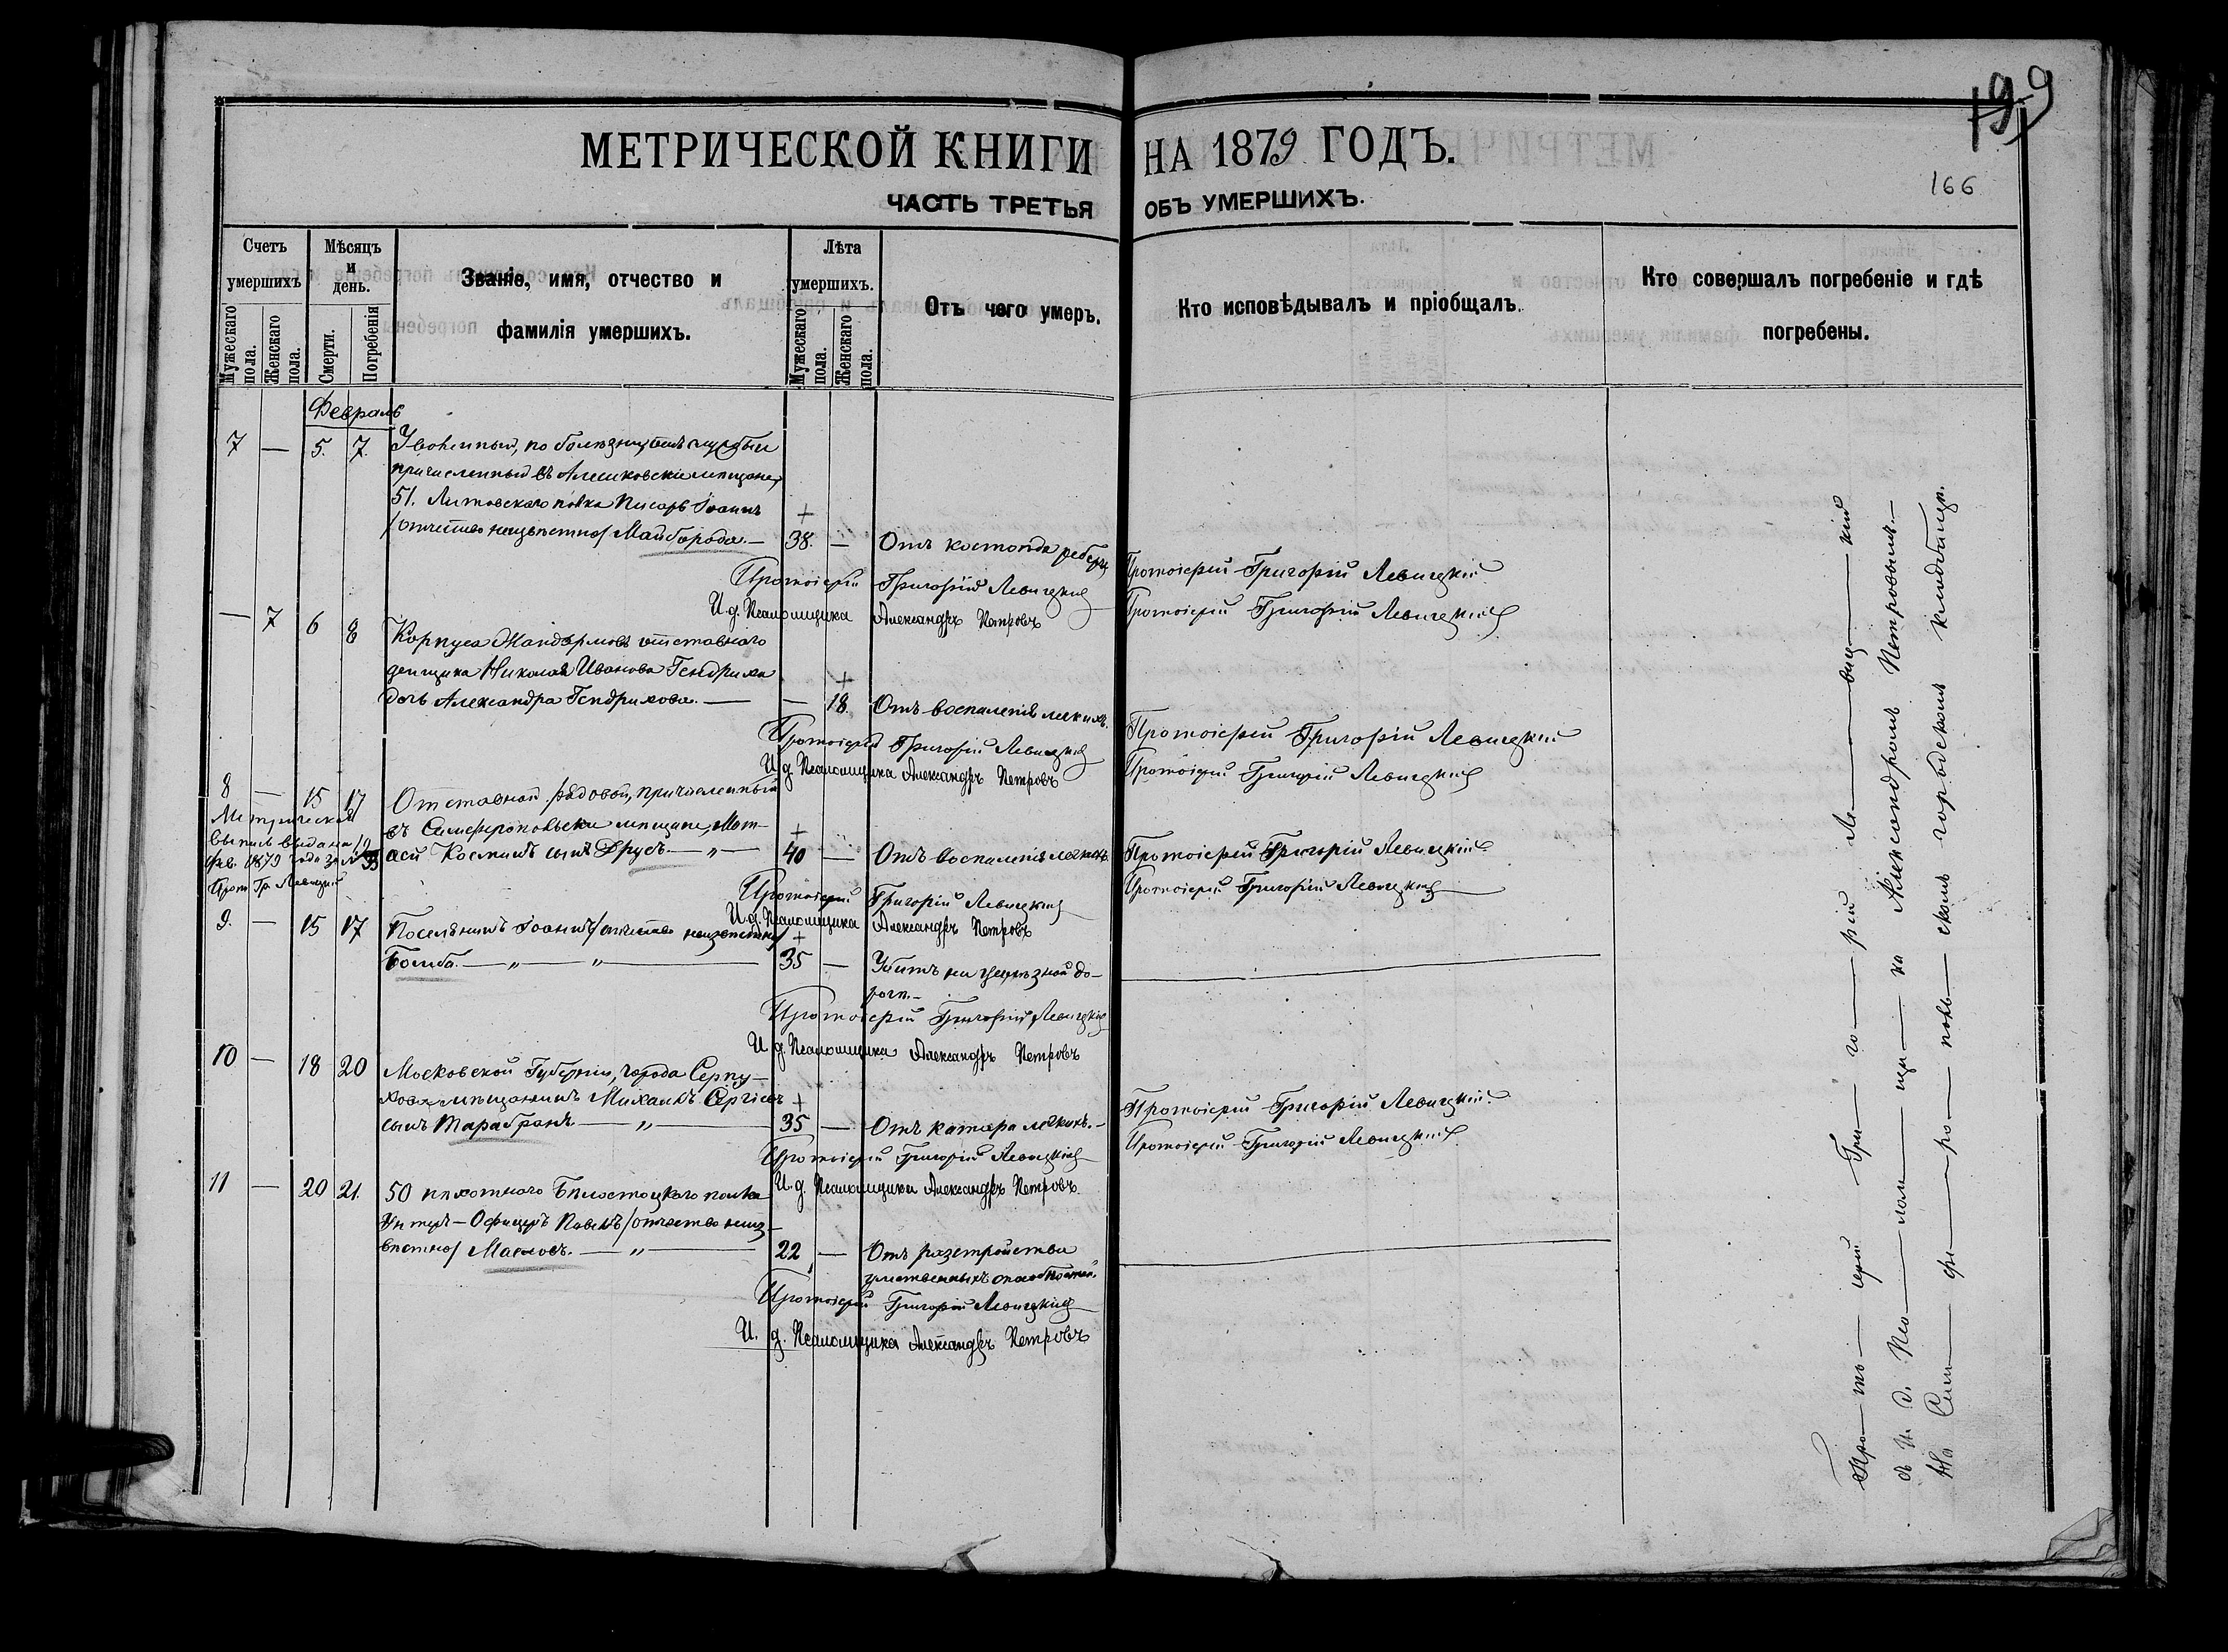 199
166
МЕТРИЧЕСКОЙ КНИГИ НА 1879 ГОДЪ.
ЧАСТЬ ТРЕТЬЯ ОБЪ УМЕРШИХЪ.
Счетъ умершихъ
Мужескаго пола.
Женскаго пола.
Мѣсяцъ и день.
Смерти.
Погребенія
Званіе, имя, отчество и
фамилія умершихъ.
Лѣта умершихъ.
Мужескаго пола.
Женскаго пола.
Отъ чего умеръ.
Кто исповѣдывалъ и пріобщалъ.
Кто совершалъ погребеніе и гдѣ
погребены.
Февраль
7 — 5. 7. Уволенный, по болѣзни, отъ службы
причисленный въ Алешковскіе мѣщане,
51. Литовскаго полка Писарь Іоаннъ
/отчество неизвѣстно/ Майборода. — 38. — Отъ костоѣда реберъ
Протоіерей Григорій Левицкій
Протоіерей Григорій Левицкій
И. д. Псаломщика Александръ Петровъ
Протоіерей Григорій Левицкій
— 7 6 8 Корпуса Жандармовъ отставнаго
денщика Николая Иванова Гендриха
дочь Александра Гендрихова. — — 18. Отъ воспаленія легкихъ.
Протоіерей Григорій Левицкій
Протоіерей Григорій Левицкій
И. д. Псаломщика Александръ Петровъ
Протоіерей Григорій Левицкій
8 — 15 17 Отставной рядовой, причисленный
въ Симферопольскіе мѣщане, Мат-
ѳей Косминъ сынъ Друсъ. — „ — 40 — Отъ воспаленія легкихъ
Метрическая
выпись выдана 19
Фев. 1879 года за № 33
Прот. Гр. Левицкій
Протоіерей Григорій Левицкій
Протоіерей Григорій Левицкій
И. д. Псаломщика Александръ Петровъ
Протоіерей Григорій Левицкій
9. — 15 17 Поселянинъ Іоаннъ /отчество неизвѣстно/
Бомба. — „ — „ — 35 — Убитъ на желѣзной до-
рогѣ. —
Протоіерей Григорій Левицкій
И. д. Псаломщика Александръ Петровъ
10 — 18 20 Московской Губерніи, города Серпу-
хова мѣщанинъ Михаилъ Сергіевъ
сынъ Тарабринъ. — „ — 35 — Отъ катара легкихъ. —
Протоіерей Григорій Левицкій
Протоіерей Григорій Левицкій
И. д. Псаломщика Александръ Петровъ.
Протоіерей Григорій Левицкій
11 — 20 21. 50 пѣхотнаго Бѣлостоцкаго полка
Унтеръ-Офицеръ Павелъ /отчество неиз-
вѣстно/ Масловъ. — „ — 22 — Отъ разстройства
умственныхъ способностей.
Протоіерей Григорій Левицкій
И. д. Псаломщика Александръ Петровъ
Про — то — іерей Гри — го — рій Ле — виц — кій
съ И. д. Пса — лом — щи — ка Александромъ Петровымъ. —
На Сим — фе — ро — поль — скомъ городскомъ кладбищѣ.